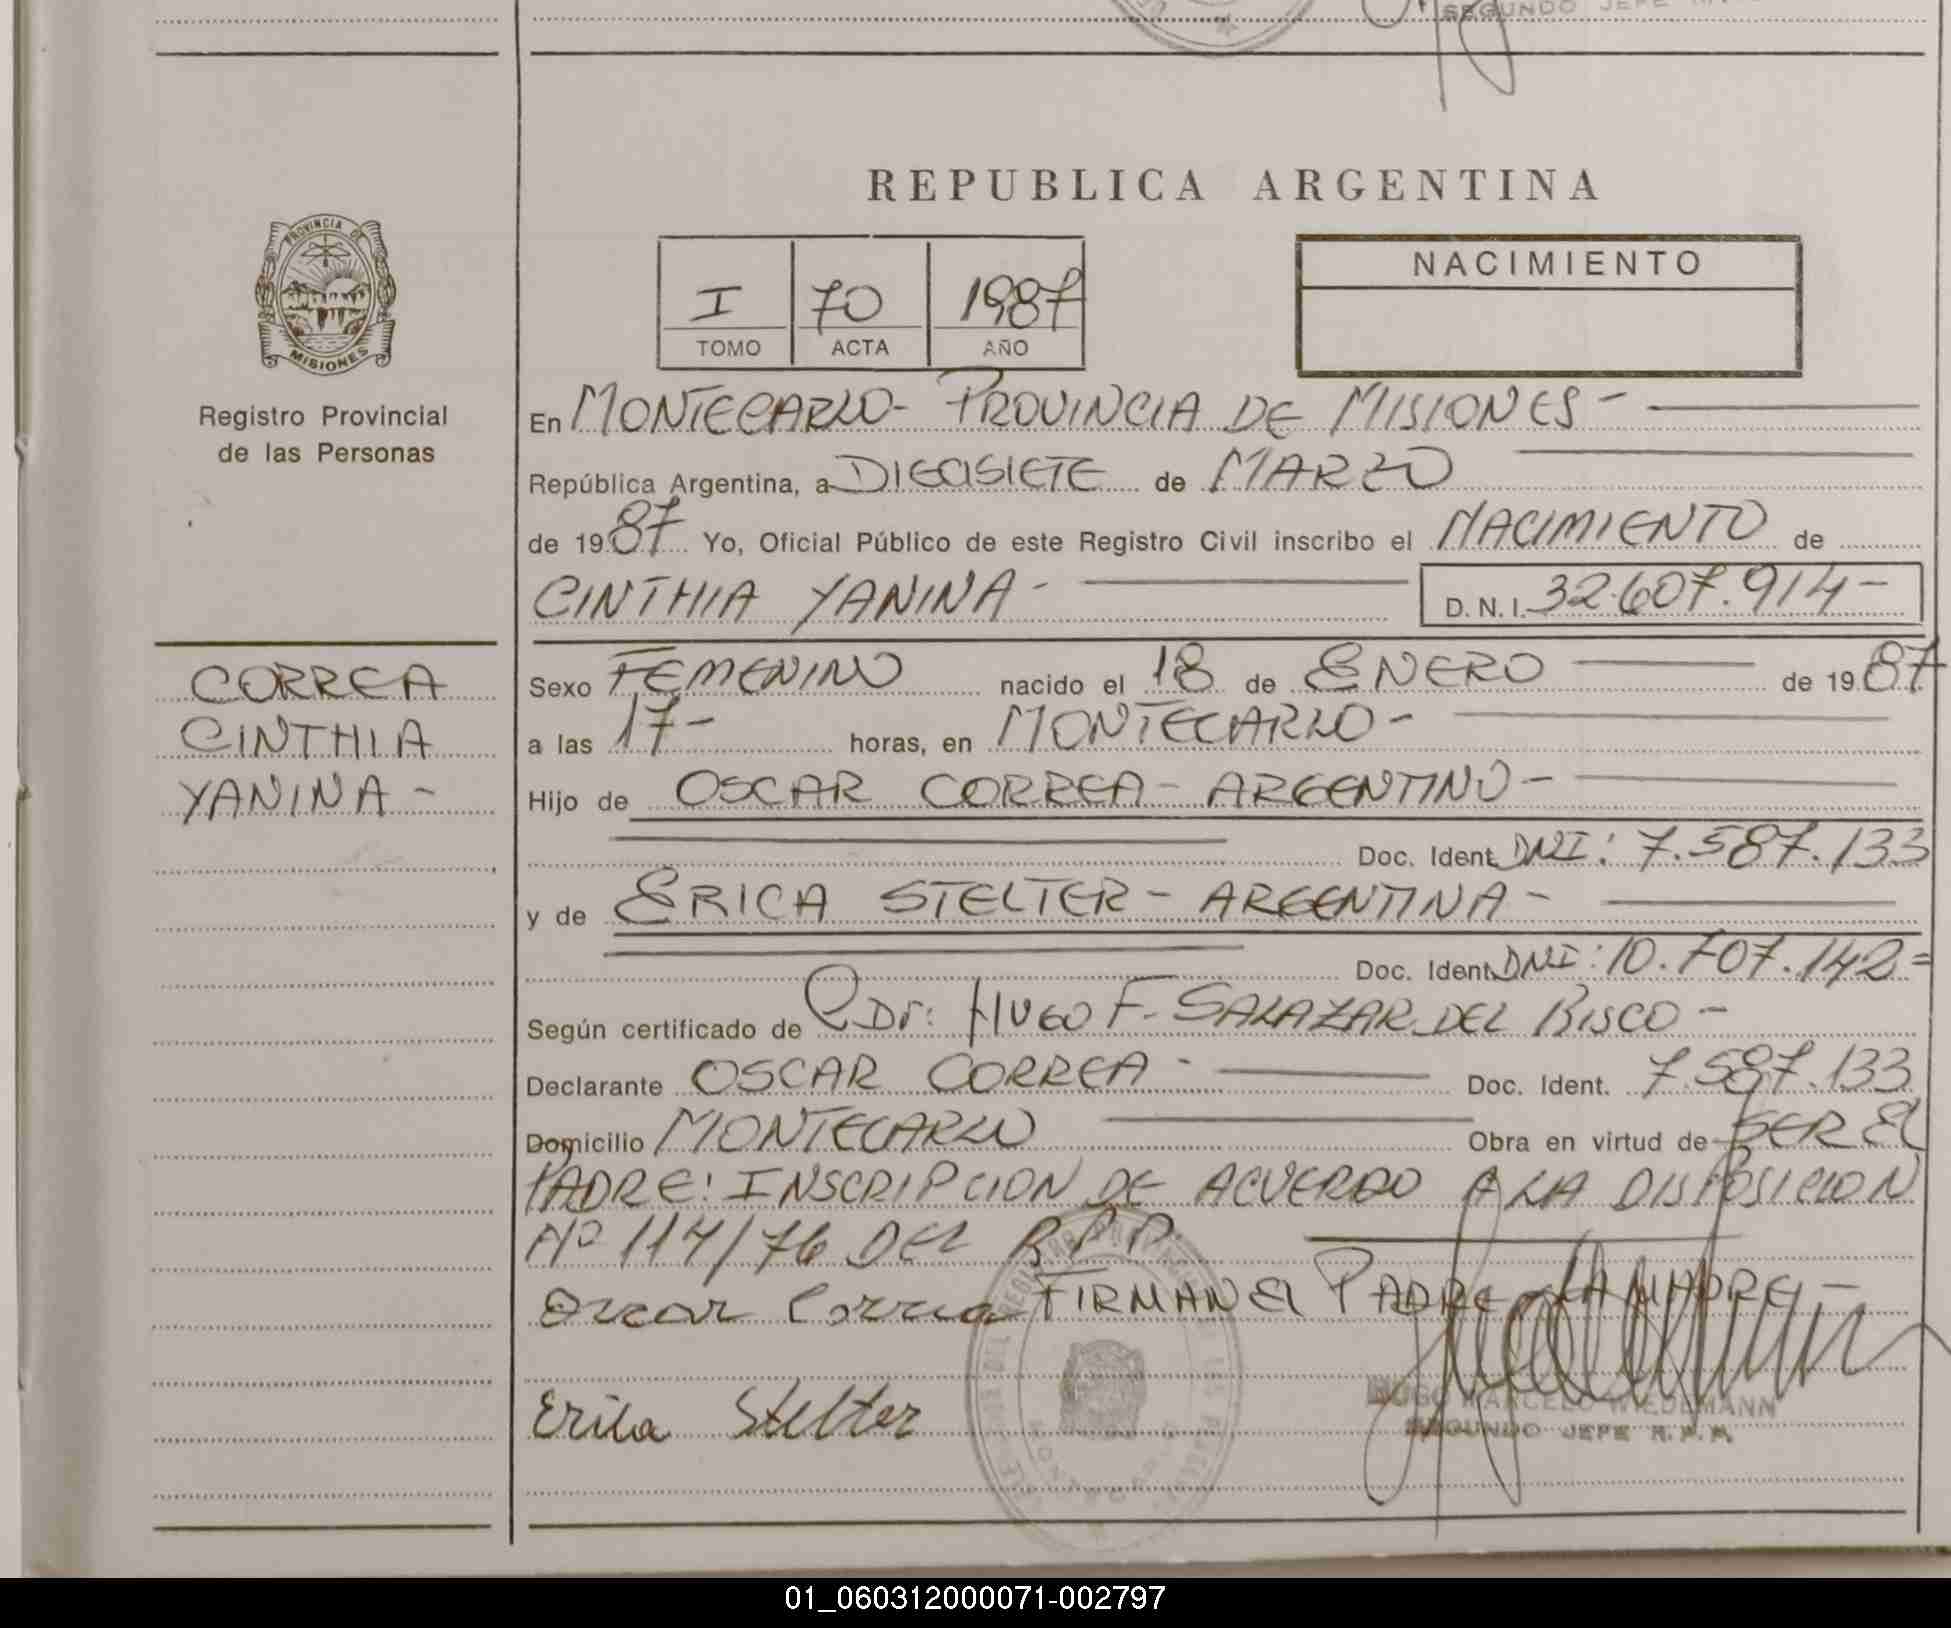 SEGUNDO JEFE
REPUBLICA ARGENTINA
PROVINCIA DE
MISIONES
Registro Provincial
de las Personas
I 70 1987
TOMO ACTA AÑO
NACIMIENTO
En MONTECARLO- PROVINCIA DE MISIONES-
República Argentina, a DIECISIETE de MARZO
de 1987 Yo, Oficial Público de este Registro Civil inscribo el NACIMIENTO de
CINTHIA YANINA-
D. N. I. 32.607.914-
CORREA
CINTHIA
YANINA-
Sexo FEMENINO nacido el 18 de ENERO de 1987
a las 17- horas, en MONTECARLO-
Hijo de OSCAR CORREA- ARGENTINO-
Doc. Ident DNI: 7.587.133
y de ERICA STELTER- ARGENTINA-
Doc. Ident DNI: 10.707.142=
Según certificado de Dr: HUGO F. SALAZAR DEL RISCO-
Declarante OSCAR CORREA- Doc. Ident. 7.587.133
Domicilio MONTECARLO Obra en virtud de SER EL
PADRE: INSCRIPCION DE ACUERDO A LA DISPOSICION
Nº 114/76 DEL R.P.P.
Oscar Correa FIRMAN EL PADRE LA MADRE-
Erica Stelter
HUGO MARCELO WIEDEMANN
SEGUNDO JEFE R.P.P.
01_060312000071-002797